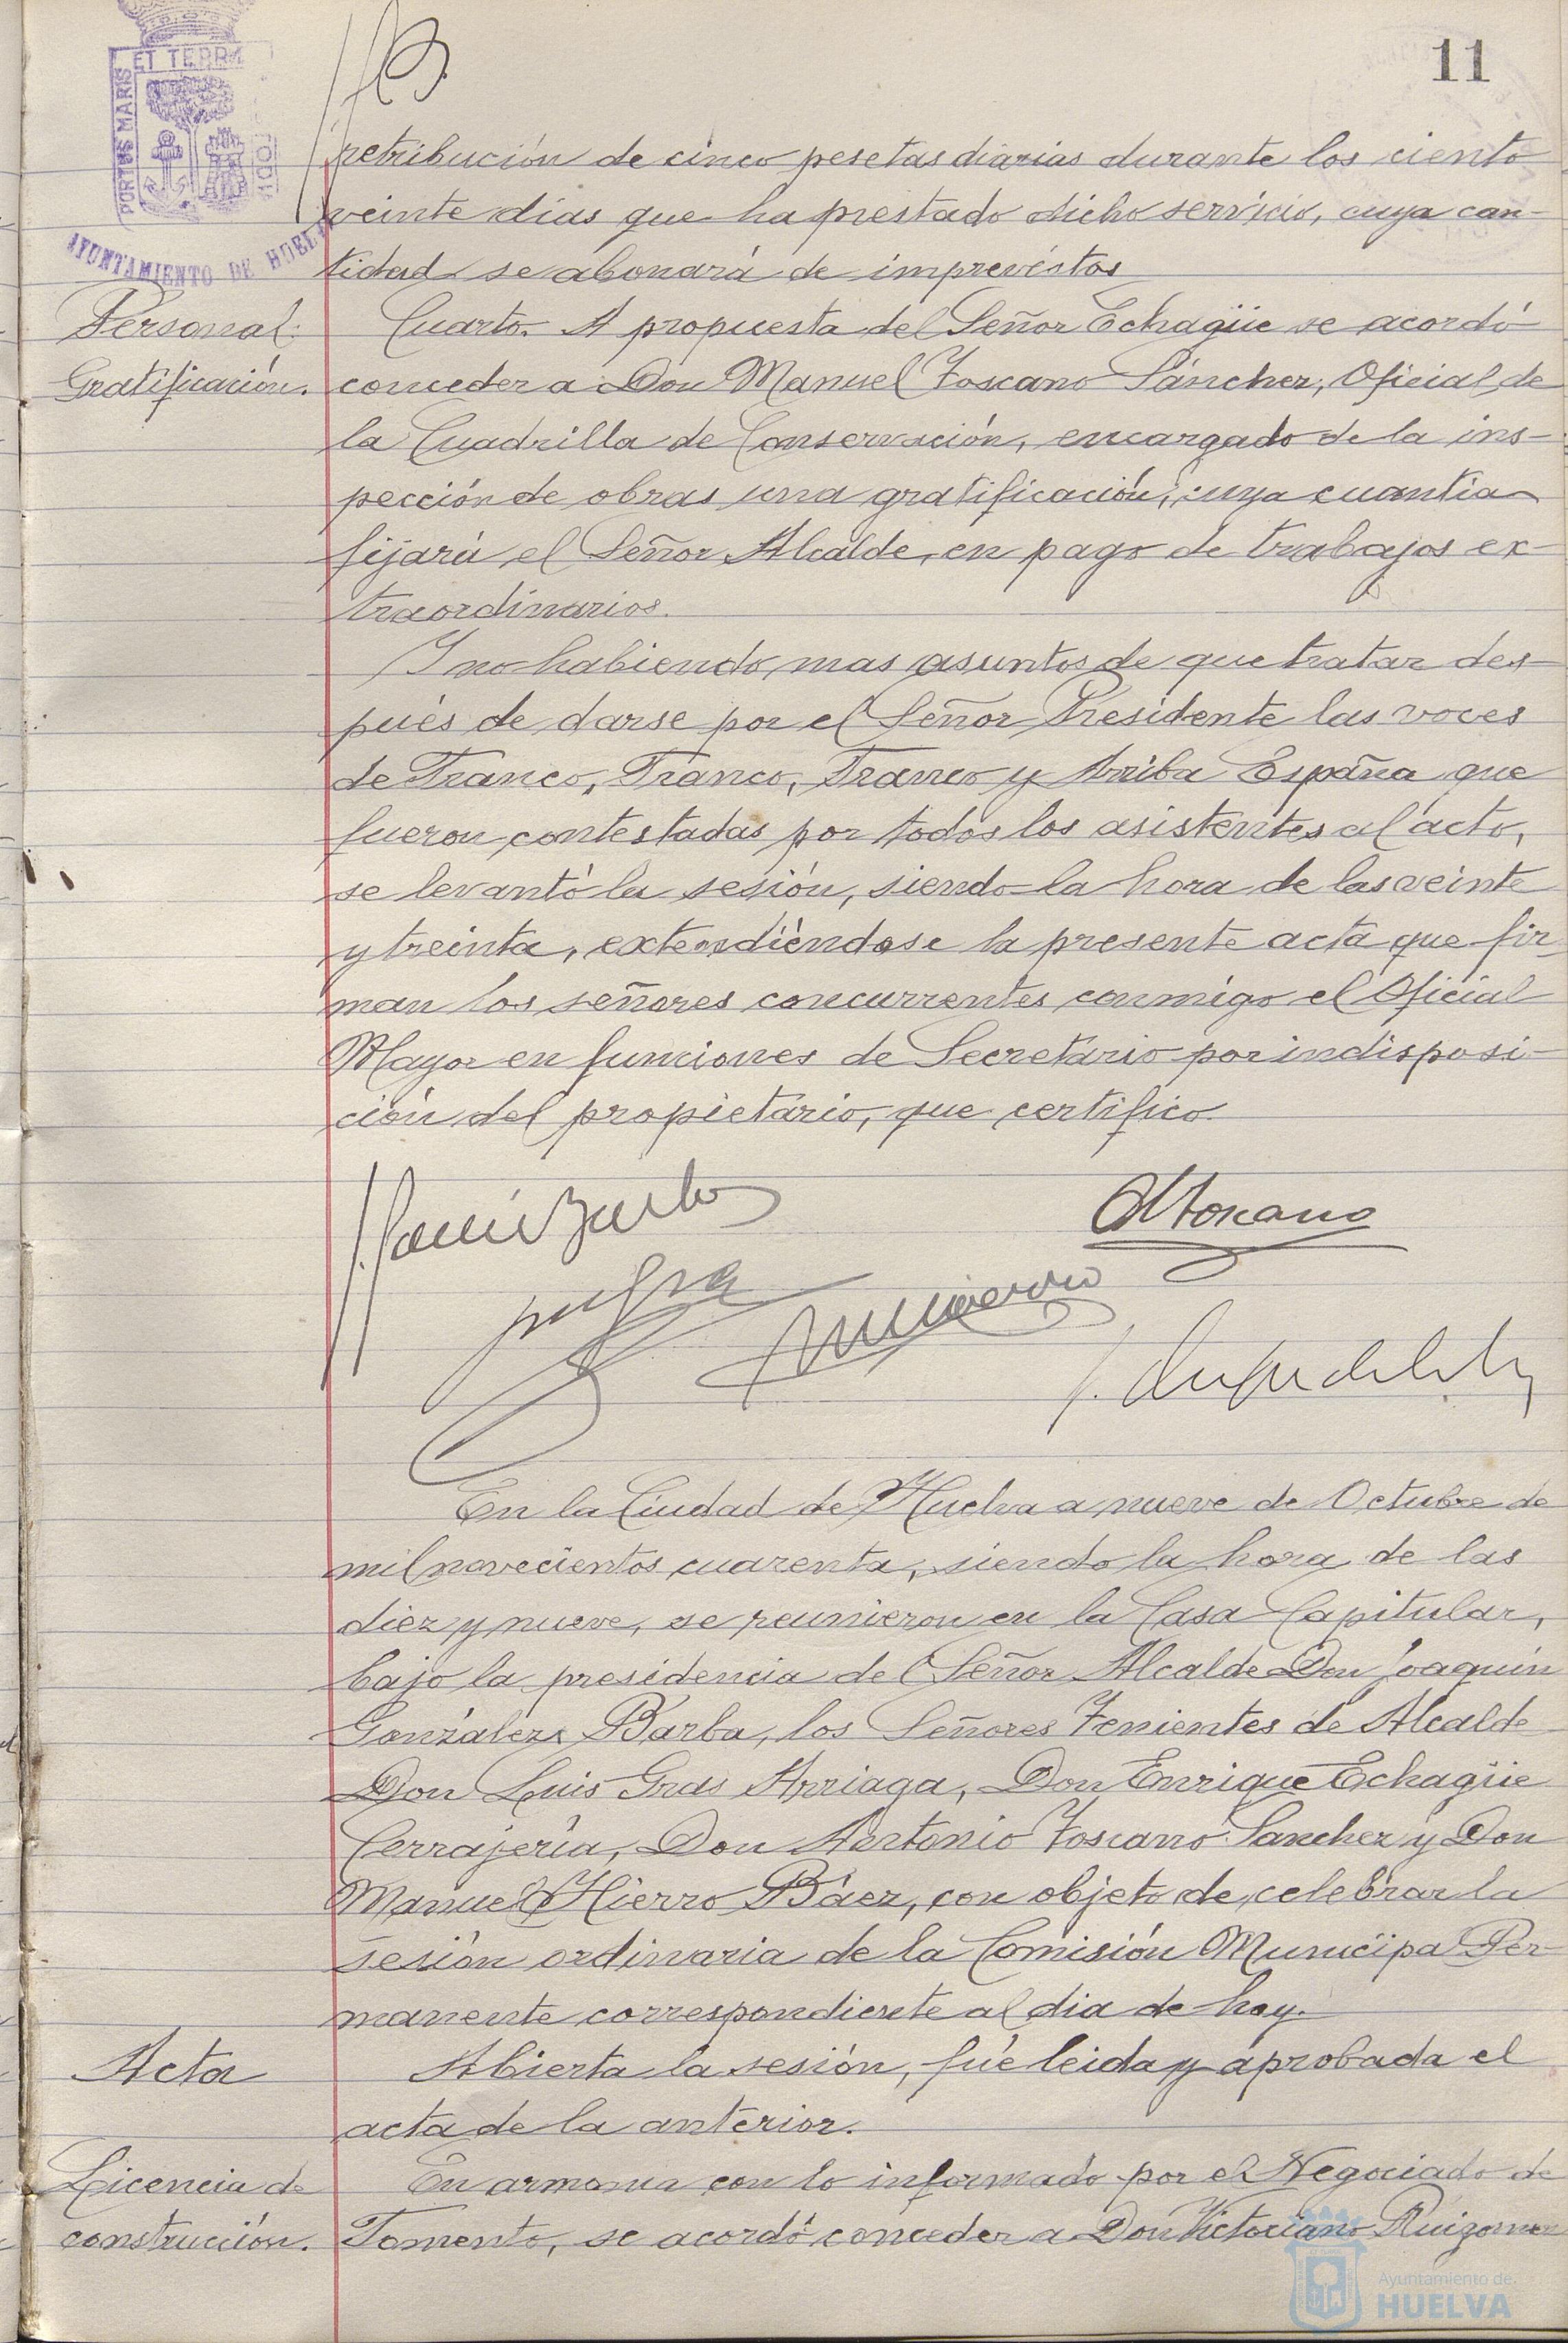 11
PORTUS MARIS ET TERRÆ CUSTODIA
AYUNTAMIENTO DE HUELVA
retribución de cinco pesetas diarias durante los ciento
veinte días que ha prestado dicho servicio, cuya can-
tidad se abonará de imprevistos
Personal:
Gratificación.
Cuarto. A propuesta del Señor Echagüe se acordó
conceder a Don Manuel Toscano Sánchez, Oficial de
la Cuadrilla de Conservación, encargado de la ins-
pección de obras una gratificación, cuya cuantia
fijará el Señor Alcalde, en pago de trabajos ex-
traordinarios.
Y no habiendo mas asuntos de que tratar des-
pués de darse por el Señor Presidente las voces
de Franco, Franco, Franco y Arriba España que
fueron contestadas por todos los asistentes al acto,
se levantó la sesión, siendo la hora de las veinte
y treinta, extendiéndose la presente acta que fir-
man los señores concurrentes conmigo el Oficial
Mayor en funciones de Secretario por indisposi-
ción del propietario, que certifico.
A Toscano
En la Ciudad de Huelva a nueve de Octubre de
mil novecientos cuarenta, siendo la hora de las
diez y nueve, se reunieron en la Casa Capitular,
bajo la presidencia del Señor Alcalde Don Joaquín
González Barba, los Señores Tenientes de Alcalde
Don Luis Gras Arriaga, Don Enrique Echagüe
Cerrajería, Don Antonio Toscano Sanchez y Don
Manuel Hierro Báez, con objeto de celebrar la
sesión ordinaria de la Comisión Municipal Per-
manente correspondiente al dia de hoy.
Acta
Abierta la sesión, fué leida y aprobada el
acta de la anterior.
Licencia de
construcción.
En armonia con lo informado por el Negociado de
Fomento, se acordó conceder a Don Victoriano Ruizgomez
Ayuntamiento de
HUELVA